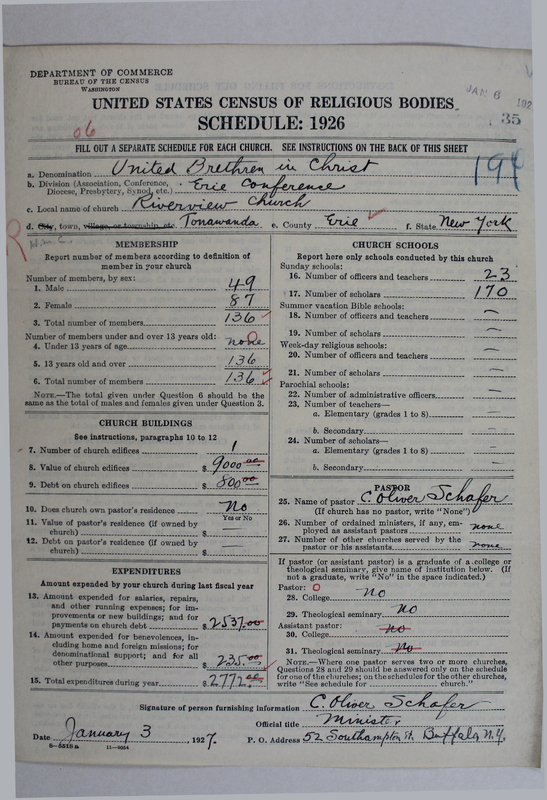 DEPARTMENT OF COMMERCE
BUREAU OF THE CENSUS
WASHINGTON
JAN 6 192
UNITED STATES CENSUS OF RELIGIOUS BODIES
SCHEDULE: 1926
06
35
194
FILL OUT A SEPARATE SCHEDULE FOR EACH CHURCH. SEE INSTRUCTIONS ON THE BACK OF THIS SHEET
a. Denomination United Brethren in Christ
b. Division (Association, Conference, Diocese, Presbytery, Synod, etc.) Erie Conference
c. Local name of church Riverview Church
d. City, town, village, or township, etc. Tonawanda e. County Erie f. State New York
R
MEMBERSHIP
Report number of members according to definition of
member in your church
Number of members, by sex:
1. Male 49
2. Female 87
3. Total number of members 136
Number of members under and over 13 years old:
4. Under 13 years of age none 0
5. 13 years old and over 136
6. Total number of members 136
NOTE.—The total given under Question 6 should be the
same as the total of males and females given under Question 3.
CHURCH BUILDINGS
See instructions, paragraphs 10 to 12
7. Number of church edifices 1
8. Value of church edifices $ 9000.00
9. Debt on church edifices $ 800.00
10. Does church own pastor's residence No
Yes or No
11. Value of pastor's residence (if owned by
church) $ —
12. Debt on pastor's residence (if owned by
church) $
EXPENDITURES
Amount expended by your church during last fiscal year
13. Amount expended for salaries, repairs,
and other running expenses; for im-
provements or new buildings; and for
payments on church debt $ 2537.00
14. Amount expended for benevolences, in-
cluding home and foreign missions; for
denominational support; and for all
other purposes $ 235.00
15. Total expenditures during year $ 2772.00
CHURCH SCHOOLS
Report here only schools conducted by this church
Sunday schools:
16. Number of officers and teachers 23
17. Number of scholars 170
Summer vacation Bible schools:
18. Number of officers and teachers —
19. Number of scholars —
Week-day religious schools:
20. Number of officers and teachers —
21. Number of scholars —
Parochial schools:
22. Number of administrative officers —
23. Number of teachers—
a. Elementary (grades 1 to 8) —
b. Secondary —
24. Number of scholars—
a. Elementary (grades 1 to 8) —
b. Secondary —
PASTOR
25. Name of pastor C. Oliver Schafer
(If church has no pastor, write "None")
26. Number of ordained ministers, if any, em-
ployed as assistant pastors none
27. Number of other churches served by the
pastor or his assistants none
If pastor (or assistant pastor) is a graduate of a college or
theological seminary, give name of institution below. (If
not a graduate, write "No" in the space indicated.)
Pastor: 0
28. College No
29. Theological seminary No
Assistant pastor:
30. College No
31. Theological seminary No
NOTE.—Where one pastor serves two or more churches,
Questions 28 and 29 should be answered only on the schedule
for one of the churches; on the schedules for the other churches,
write "See schedule for church."
Signature of person furnishing information C. Oliver Schafer
Official title Minister
Date January 3, 1927. P. O. Address 52 Southampton St. Buffalo, N.Y.
8-5518a 11-9064